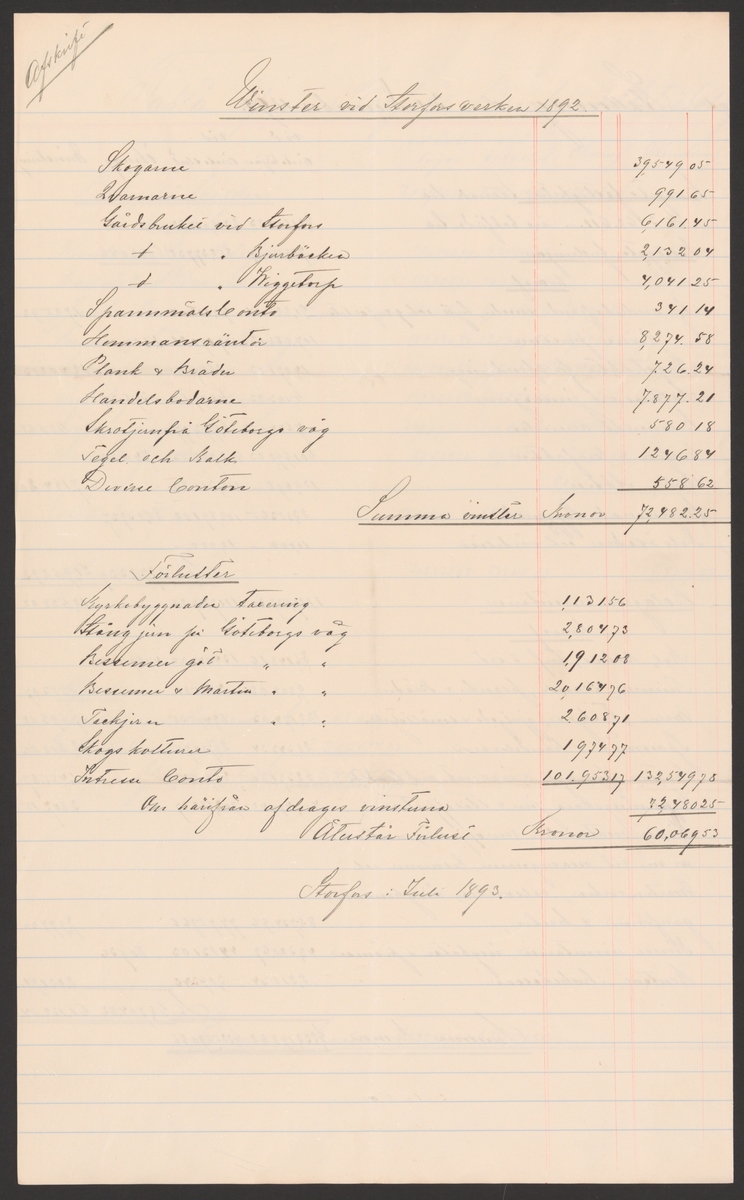 Afskrift
Winster vid Storforsverken 1892.
Skogarne 39549 05
Qvarnarne 991 65
Gårdsbruket vid Storfors 6,161.45
d " Bjurbäcken 2,132 04
d " Wiggetorp 4,041 25
Spannmåls Conto 341 14
Hemmansräntor 8,274.58
Plank & Bräder 726.24
Handelsbodarne 7.877.21
Skrotjern frå Göteborgs våg 580 18
Tegel och Kalk 1246 84
Diverse Conton 558 62
Summa vinster Kronor 72,482.25
Förluster
Kyrkobyggnader Taxering 1,131 56
Stångjern på Göteborgs våg 2,804 73
Bessemer göt " " 1,912 08
Bessemer & Martin " " 20,164 76
Tackjern " " 2608 71
Skogskulturer 1974 77
Intresse Conto 101.953.17 132,549 78
Om härifrån afdrages vinsterna 72,480 25
Återstår Förlust Kronor 60,069 53
Storfors i Juli 1893.